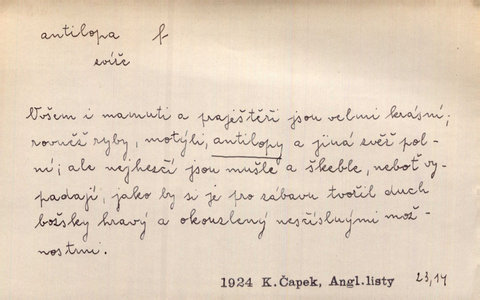 antilopa f
zvíře
Ovšem i mamuti a praještěři jsou velmi krásní;
rovněž ryby, motýli, antilopy a jiná zvěř pol-
ní; ale nejhezčí jsou mušle a škeble, neboť vy-
padají, jako by si je pro zábavu tvořil duch
božsky hravý a okouzlený nesčíslnými mož-
nostmi.
1924 K.Čapek, Angl.listy 23,14